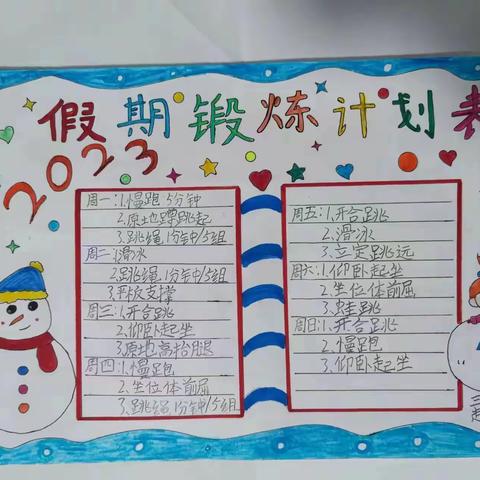 假期锻炼计划表
2023
周一:1.慢跑 5分钟
2.原地蹲跳起
3.跳绳,1分钟/5组
周二:滑冰
2.跳绳,1分钟/5组
3.平板支撑
周三:1.开合跳
2.仰卧起坐
3.原地高抬腿
周四:1.慢跑
2.坐位体前屈
3.跳绳,1分钟/5组
周五:1.开合跳
2.滑冰
3.立定跳远
周六:1.仰卧起坐
2.坐位体前屈
3.蛙跳
周日:1.开合跳
2.慢跑
3.仰卧起坐